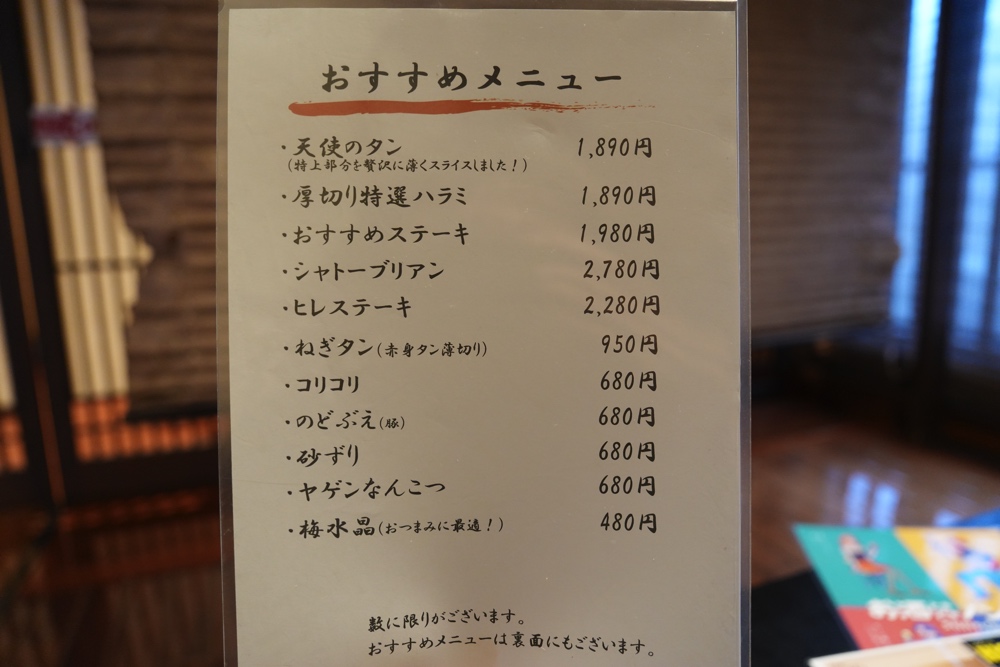 おすすめメニュー
・天使のタン 1,890円
(特上部分を贅沢に薄くスライスしました！)
・厚切り特選ハラミ 1,890円
・おすすめステーキ 1,980円
・シャトーブリアン 2,780円
・ヒレステーキ 2,280円
・ねぎタン(赤身タン薄切り) 950円
・コリコリ 680円
・のどぶえ(豚) 680円
・砂ずり 680円
・ヤゲンなんこつ 680円
・梅水晶(おつまみに最適！) 480円
数に限りがございます。
おすすめメニューは裏面にもございます。